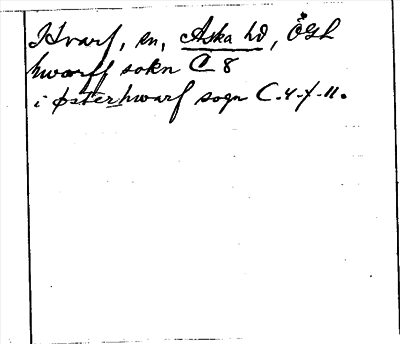 Hvarf, sn, Aska hd, Ögl
hwarff sokn C 8
i østerhwarf sogn C.4.f.11.